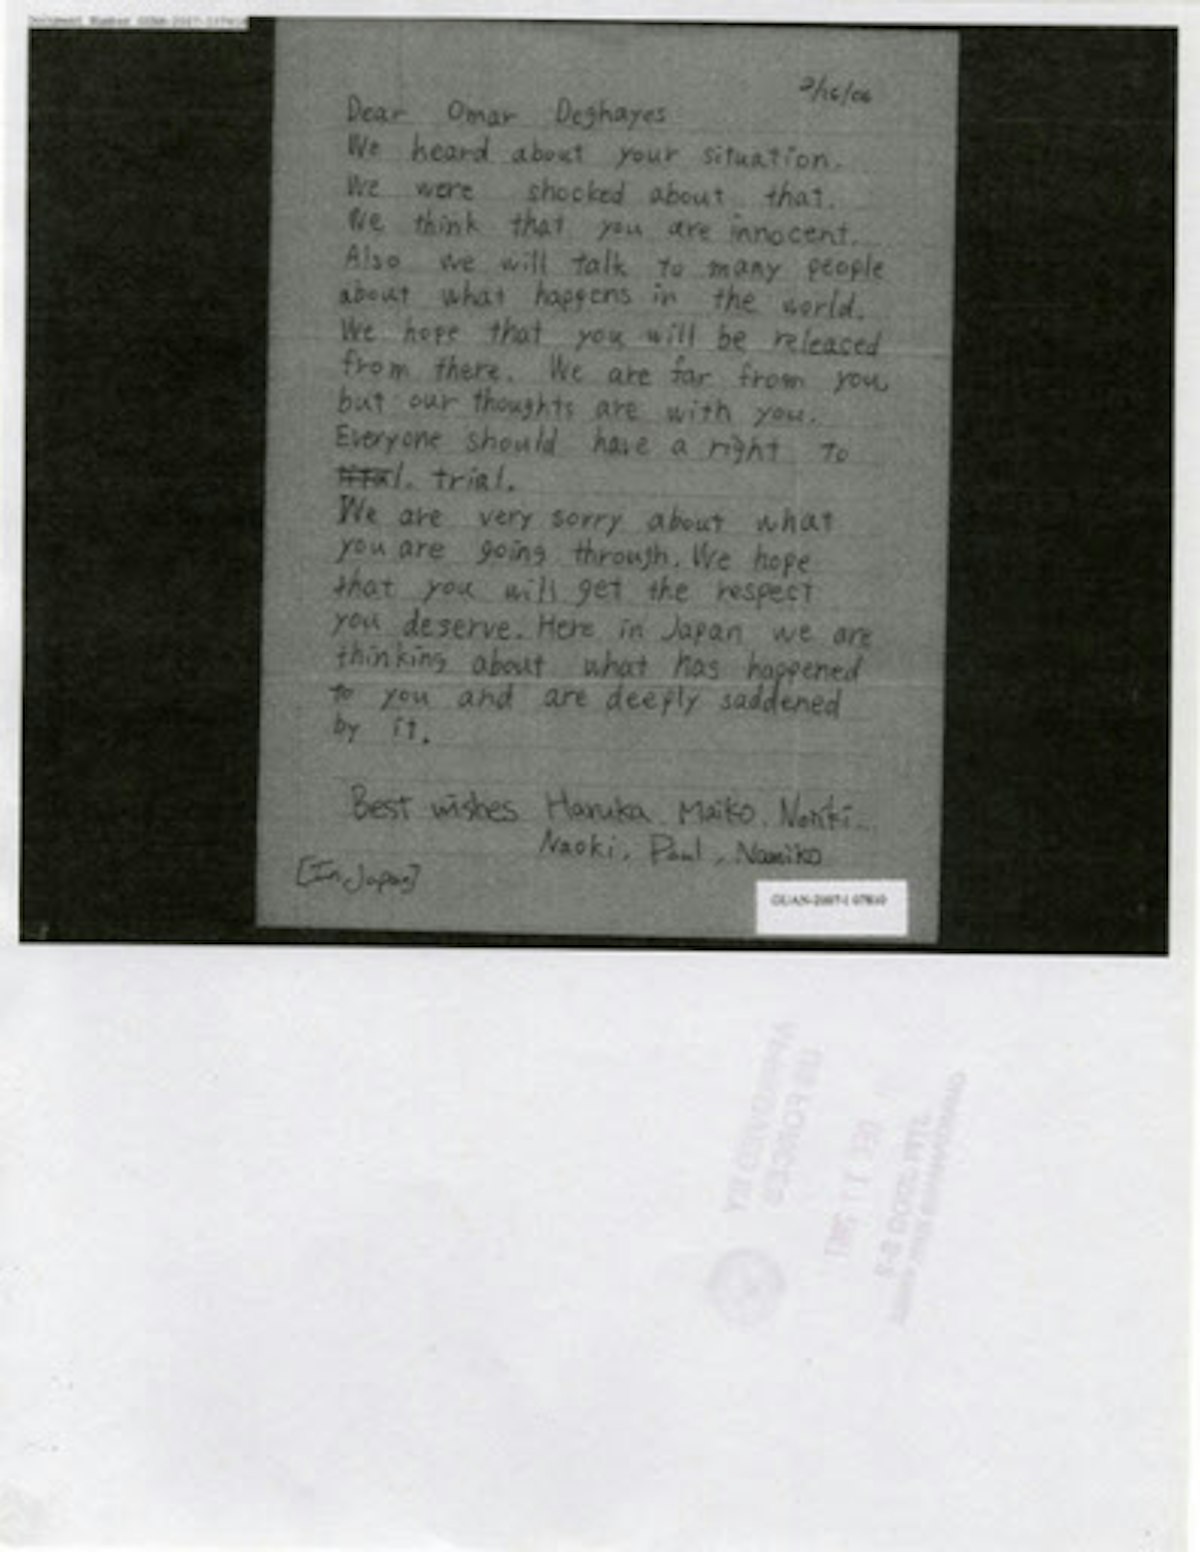 Document Number
2/16/06
Dear Omar Deghayes
We heard about your situation.
We were shocked about that.
We think that you are innocent.
Also we will talk to many people
about what happens in the world.
We hope that you will be released
from there. We are far from you
but our thoughts are with you.
Everyone should have a right to
trial.
We are very sorry about what
you are going through. We hope
that you will get the respect
you deserve. Here in Japan we are
thinking about what has happened
to you and are deeply saddened
by it.
Best wishes Haruka Maiko. Noriki
Naoki, Paul, Namiko
[In Japan]
US FORCES